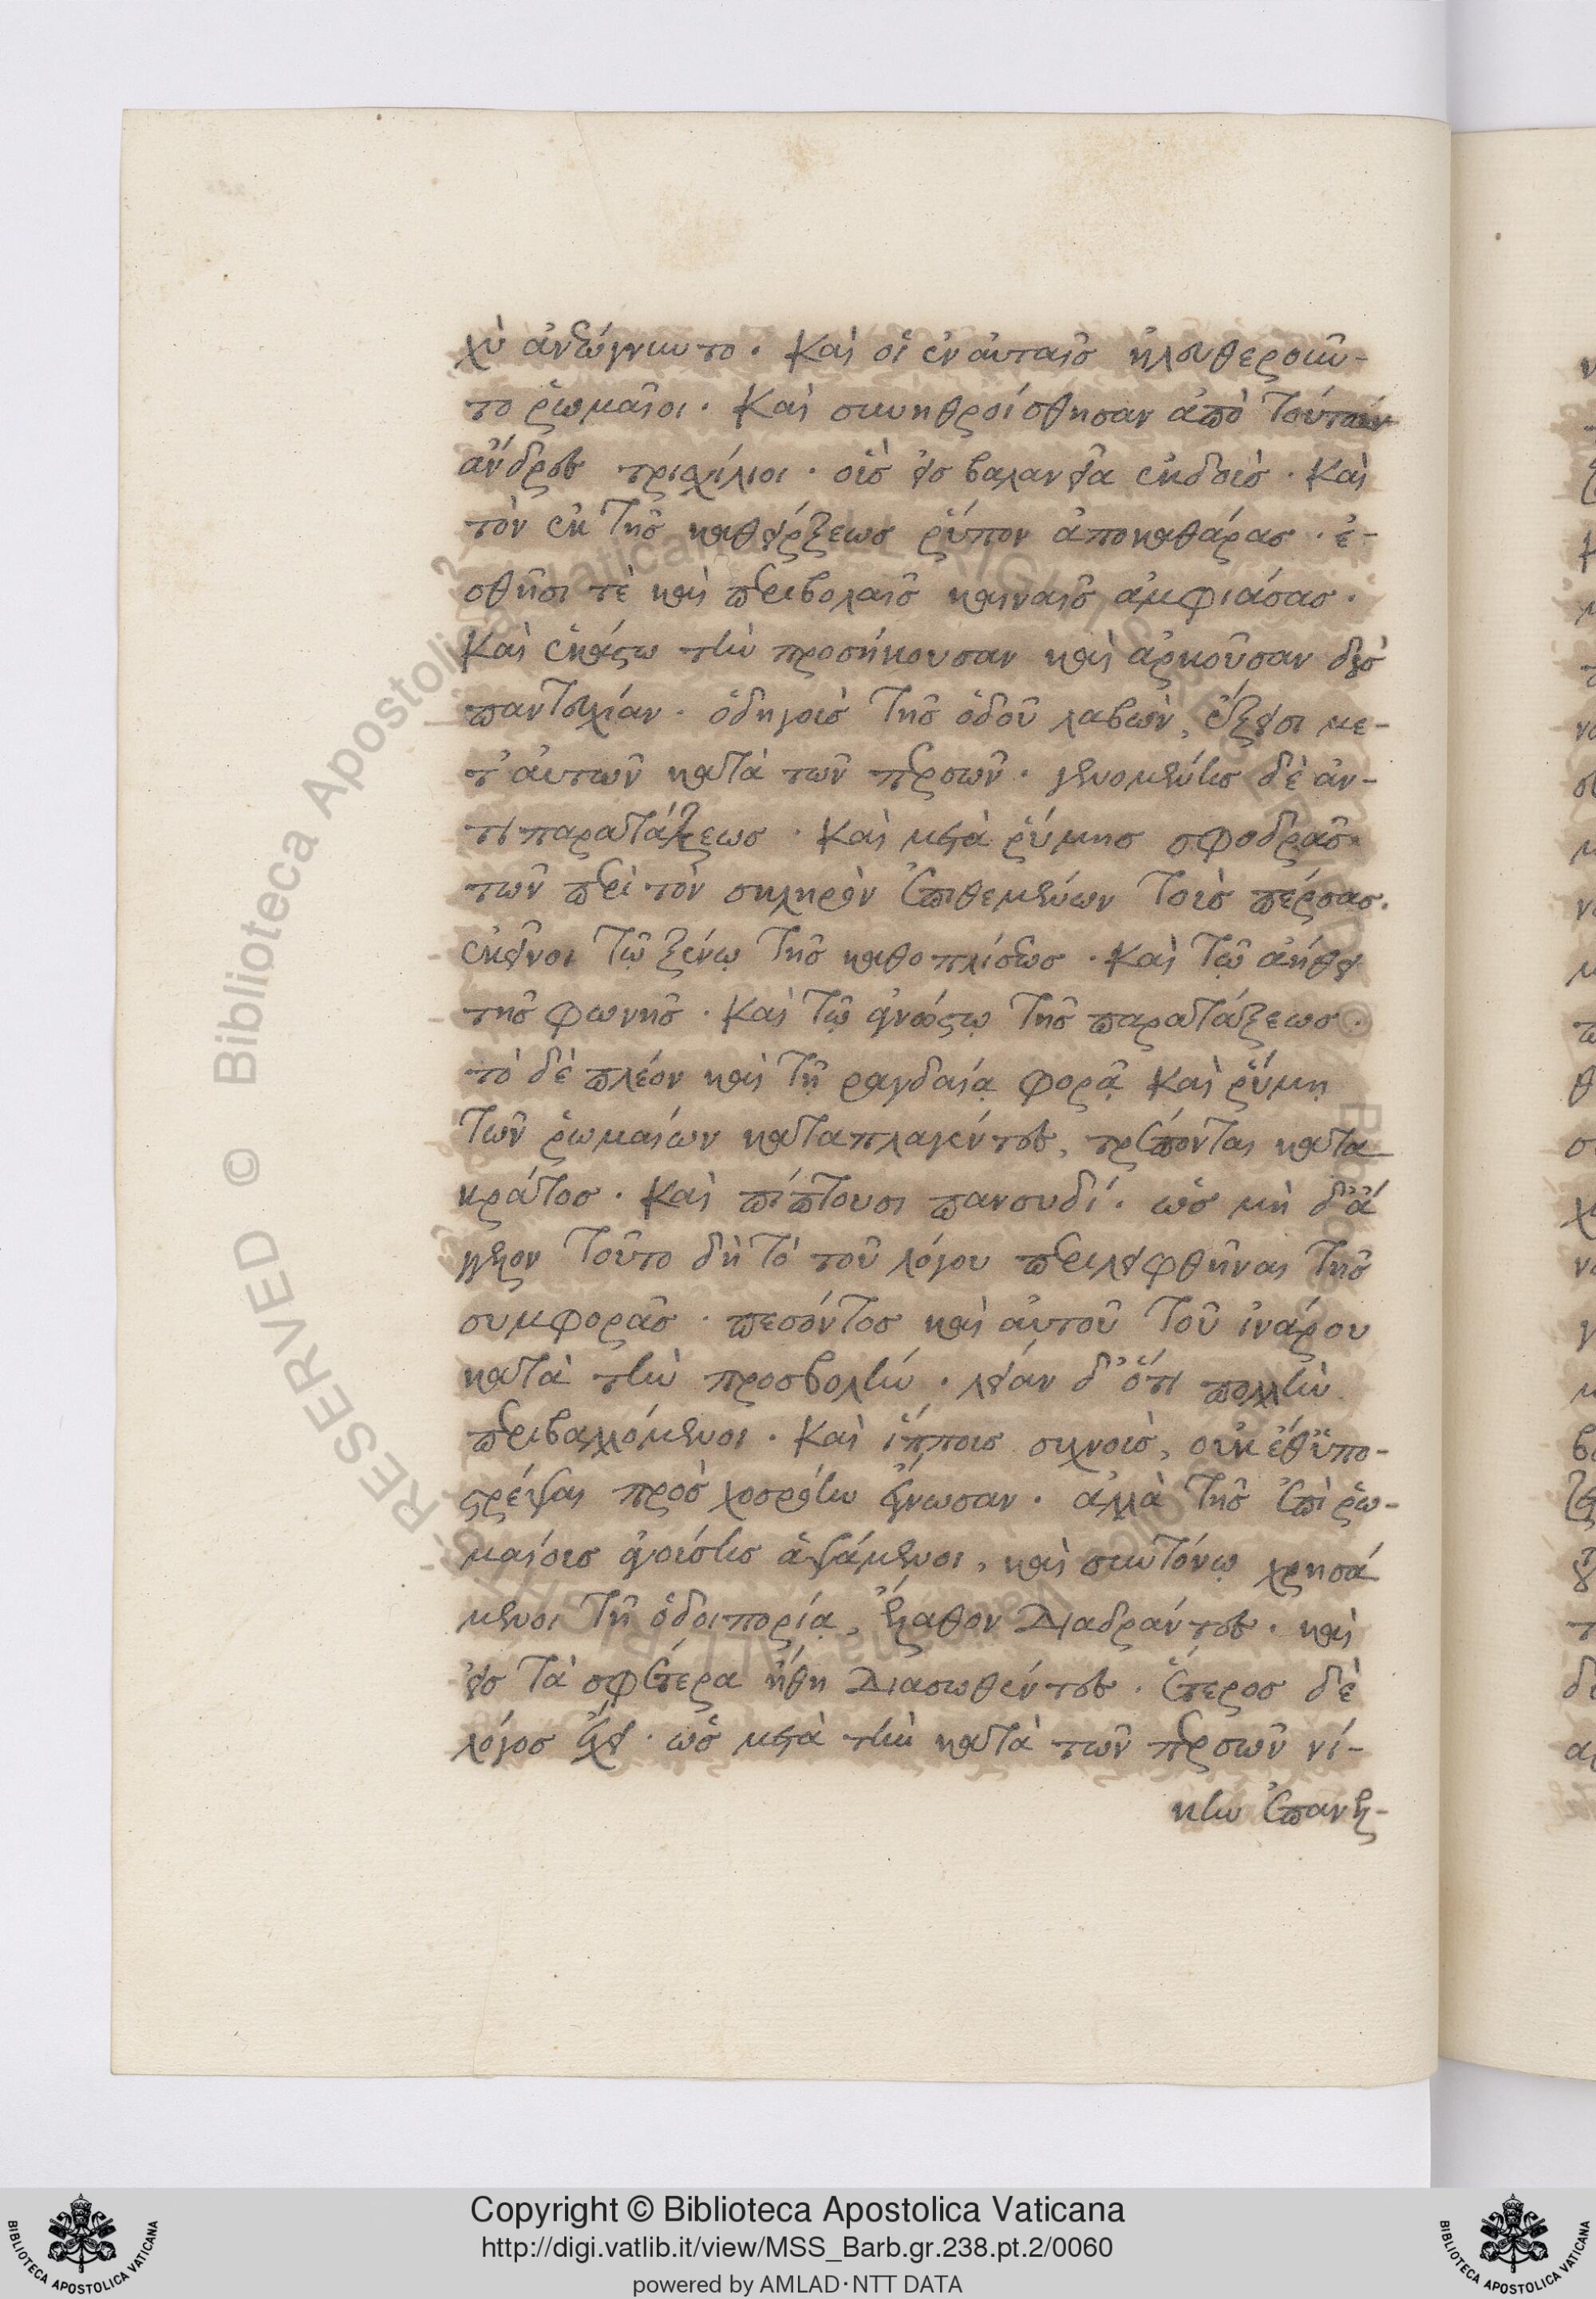 χὺ ἀνεώγνυντο. Καὶ οἱ ἐν αὐταῖς ἠλευθεροῦν-
το ῥωμαῖοι. Καὶ συνηθροίσθησαν ἀπὸ τούτων
ἄνδρες τρισχίλιοι. οὓς εἰς βαλανεῖα ἐκδοὺς. Καὶ
τὸν ἐκ τῆς καθείρξεως ῥύπον ἀποκαθάρας. ἐ-
σθῆσι τὲ καὶ περιβολαῖς καιναῖς ἀμφιάσας.
Καὶ ἑκάστω τὴν προσήκουσαν καὶ ἀρκοῦσαν δοὺς
παντευχίαν. ὁδηγοὺς τῆς ὁδοῦ λαβὼν, ἔξεισι με-
τ' αὐτῶν κατὰ τῶν περσῶν. γενομένης δὲ ἀν-
τιπαρατάξεως. Καὶ μετὰ ῥύμης σφοδρᾶς
τῶν περὶ τὸν σκληρὸν ἐπιθεμένων τοῖς πέρσαις.
ἐκεῖνοι τῷ ξένῳ τῆς καθοπλίσεως. Καὶ τῷ ἀήθει
τῆς φωνῆς. Καὶ τῷ ἀγνώστῳ τῆς παρατάξεως.
τὸ δὲ πλέον καὶ τῇ ραγδαίᾳ φορᾷ Καὶ ῥύμῃ
τῶν ῥωμαίων καταπλαγέντες, τρέπονται κατα
κράτος. Καὶ πίπτουσι πανσυδί. ὡς μὴ δ' ἄ
γγελον τοῦτο δὴ τὸ τοῦ λόγου περιλειφθῆναι τῆς
συμφορᾶς. πεσόντος καὶ αὐτοῦ τοῦ ἰνάρου
κατὰ τὴν προσβολήν. λείαν δ' ὅτι πολλὴν
περιβαλλόμενοι. Καὶ ἵπποις συχνοῖς, οὐκ ἔθ' ὑπο-
στρέψαι πρὸς χοσρόην ἔγνωσαν. ἀλλὰ τῆς ἐπὶ ῥω-
μαίοις εὐνοίας ἁψάμενοι, καὶ συντόνῳ χρησά
μενοι τῇ ὁδοιπορίᾳ, ἔλαθον διαδράντες. καὶ
εἰς τὰ σφέτερα ἤθη διασωθέντες. ἕτερος δὲ
λόγος ἔχει. ὡς μετὰ τὴν κατὰ τῶν περσῶν νί-
κην ἐπανελ-
Copyright © Biblioteca Apostolica Vaticana
http://digi.vatlib.it/view/MSS_Barb.gr.238.pt.2/0060
powered by AMLAD·NTT DATA